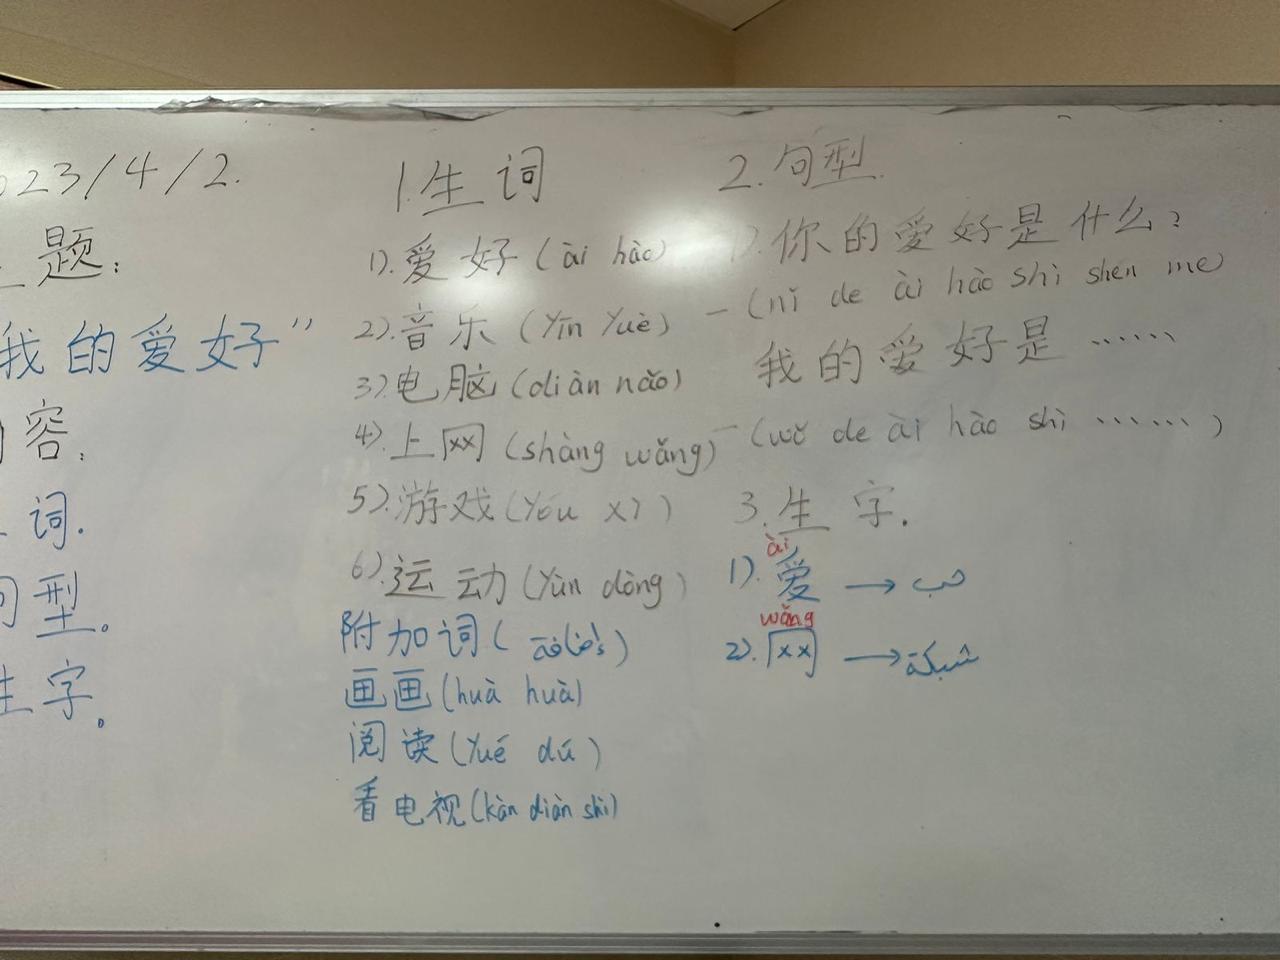 023/4/2.
题:
我的爱好"
容:
词.
句型。
生字。
1.生词
1).爱好(ài hào)
2).音乐(yīn yuè)
3)电脑(diàn nǎo)
4).上网(shàng wǎng)
5).游戏(yóu xì)
6).运动(yùn dòng)
附加词( إضافية )
画画(huà huà)
阅读(yué dú)
看电视(kàn diàn shì)
2.句型.
1).你的爱好是什么?
-(nǐ de ài hào shì shén me)
我的爱好是······
-(wǒ de ài hào shì ······)
3.生字.
ài
1).爱→حب
wǎng
2).网→شبكة